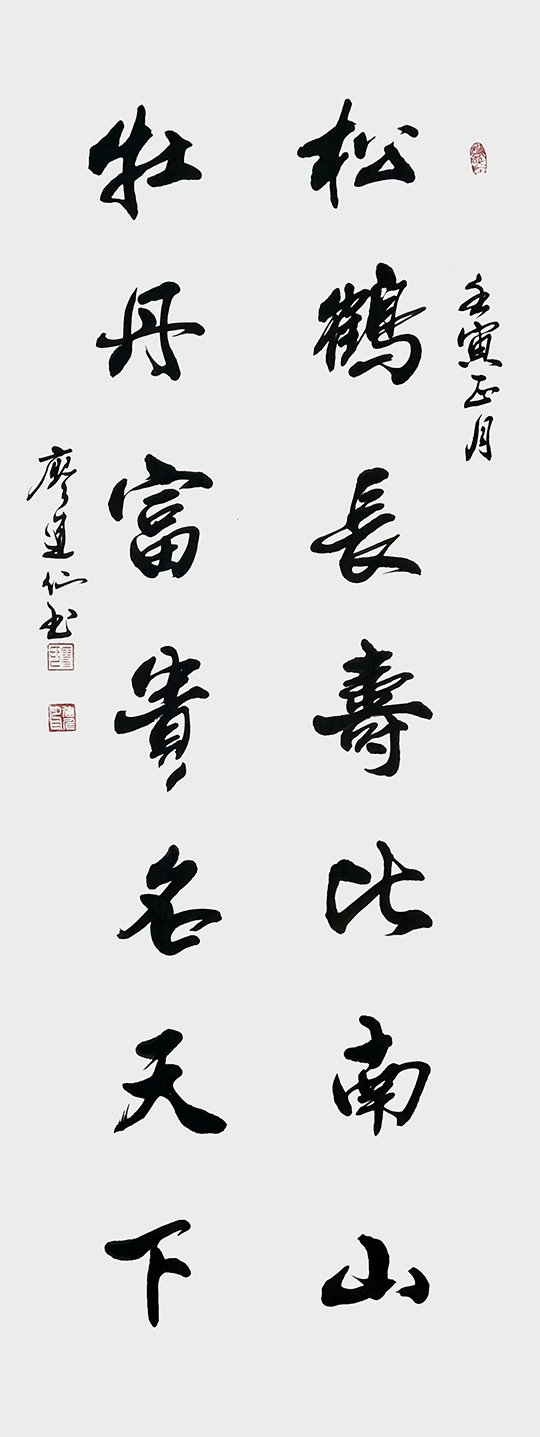 壬寅正月
松鶴長壽比南山
牡丹富貴名天下
廖運仙书